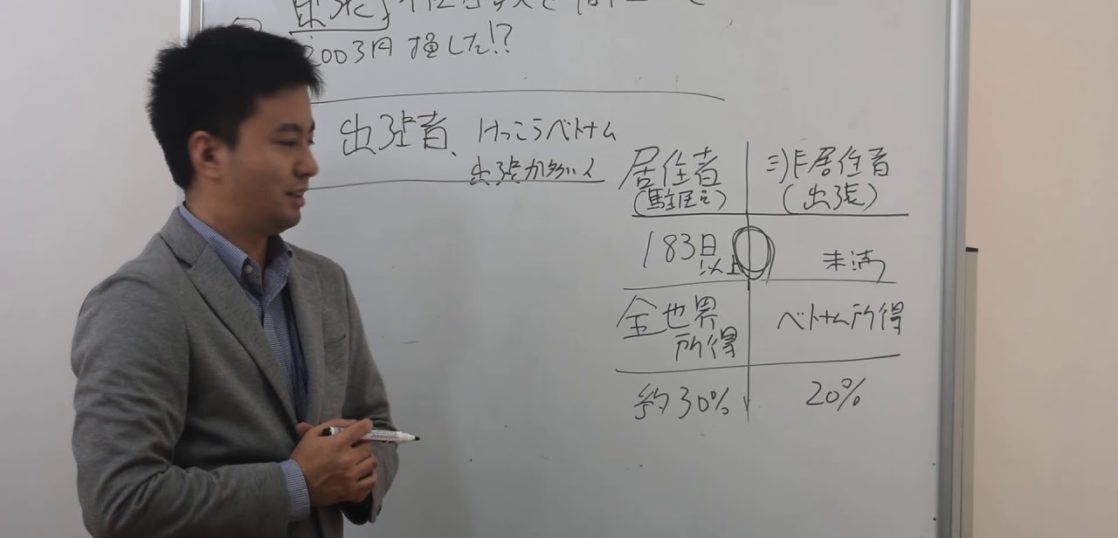 出張
2003円 損した!?
出張者、けっこうベトナム
出張が多い
居住者
(駐在元)
非居住者
(出張)
183日
以上
未満
全世界
所得
ベトナム所得
約30%
20%